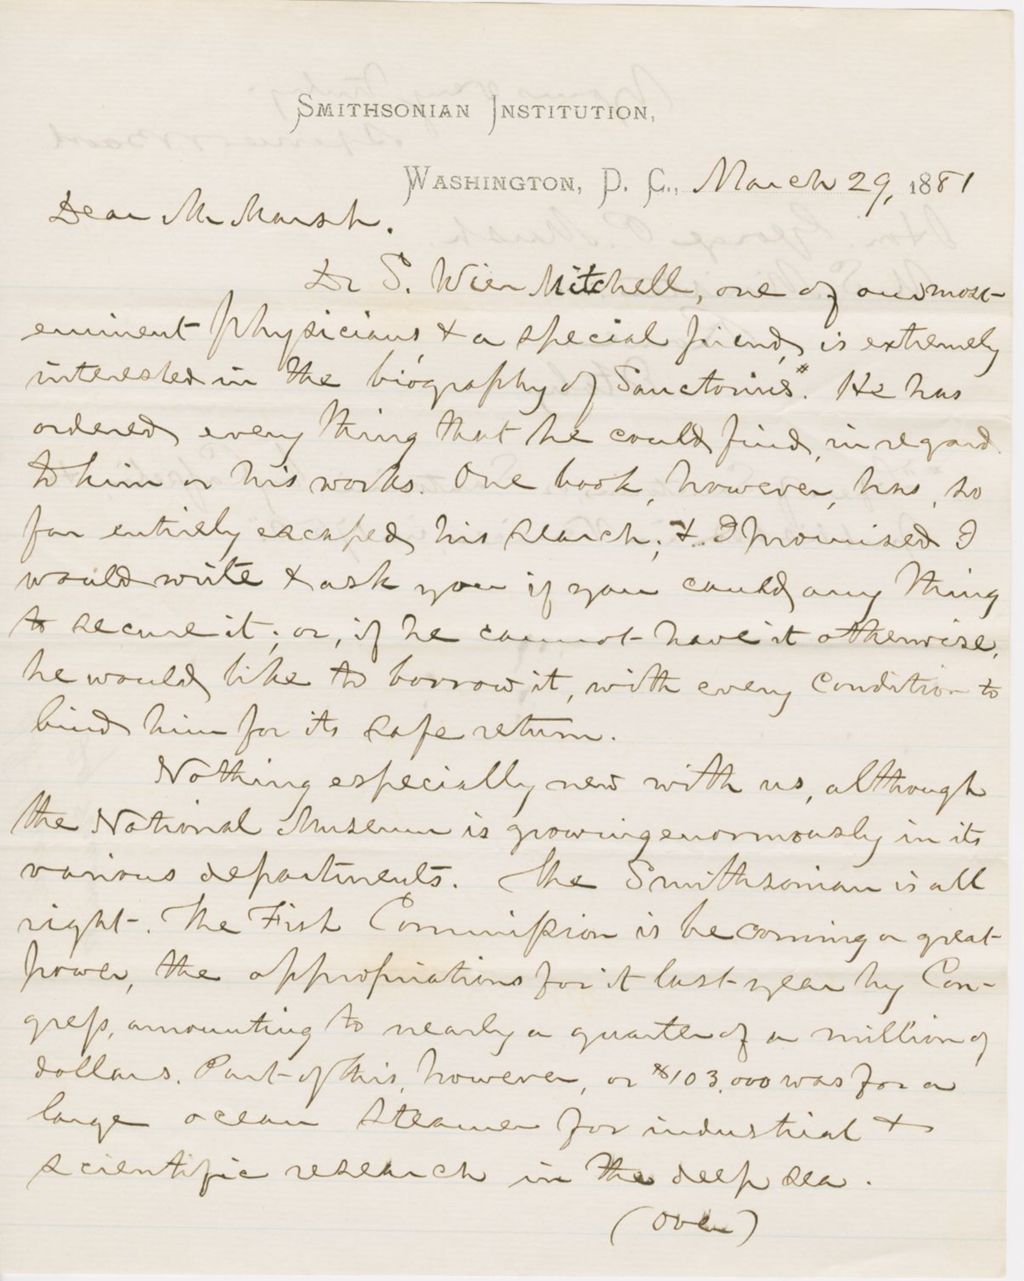 SMITHSONIAN INSTITUTION,
WASHINGTON, D. C., March 29, 1881
Dear Mr Marsh.
Dr S. Wier Mitchell, one of our most
eminent physicians, & a special friend, is extremely
interested in the biography of Sanctorius*. He has
ordered every thing that he could find, in regard
to him or his works. One book, however, has, so
far entirely escaped his search; & I promised I
would write & ask you if you could any thing
to secure it; or, if he cannot have it otherwise,
he would like to borrow it, with every condition to
bind him for its safe return.
Nothing especially new with us, although
the National Museum is growing enormously in its
various departments. The Smithsonian is all
right. The Fish Commission is becoming a great
power, the appropriations for it last year by Con-
gress, amounting to nearly a quarter of a million of
dollars. Part of this, however, or $103,000 was for a
large ocean steamer for industrial &
scientific research in the deep sea.
(over)